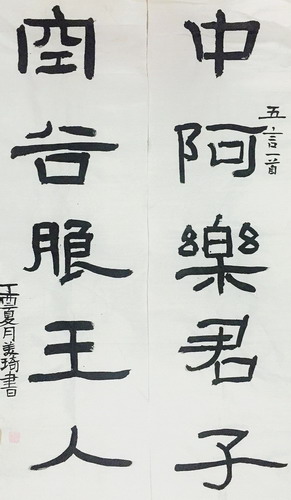 中阿樂君子
五言一首
空谷王人
丁酉夏月琦書